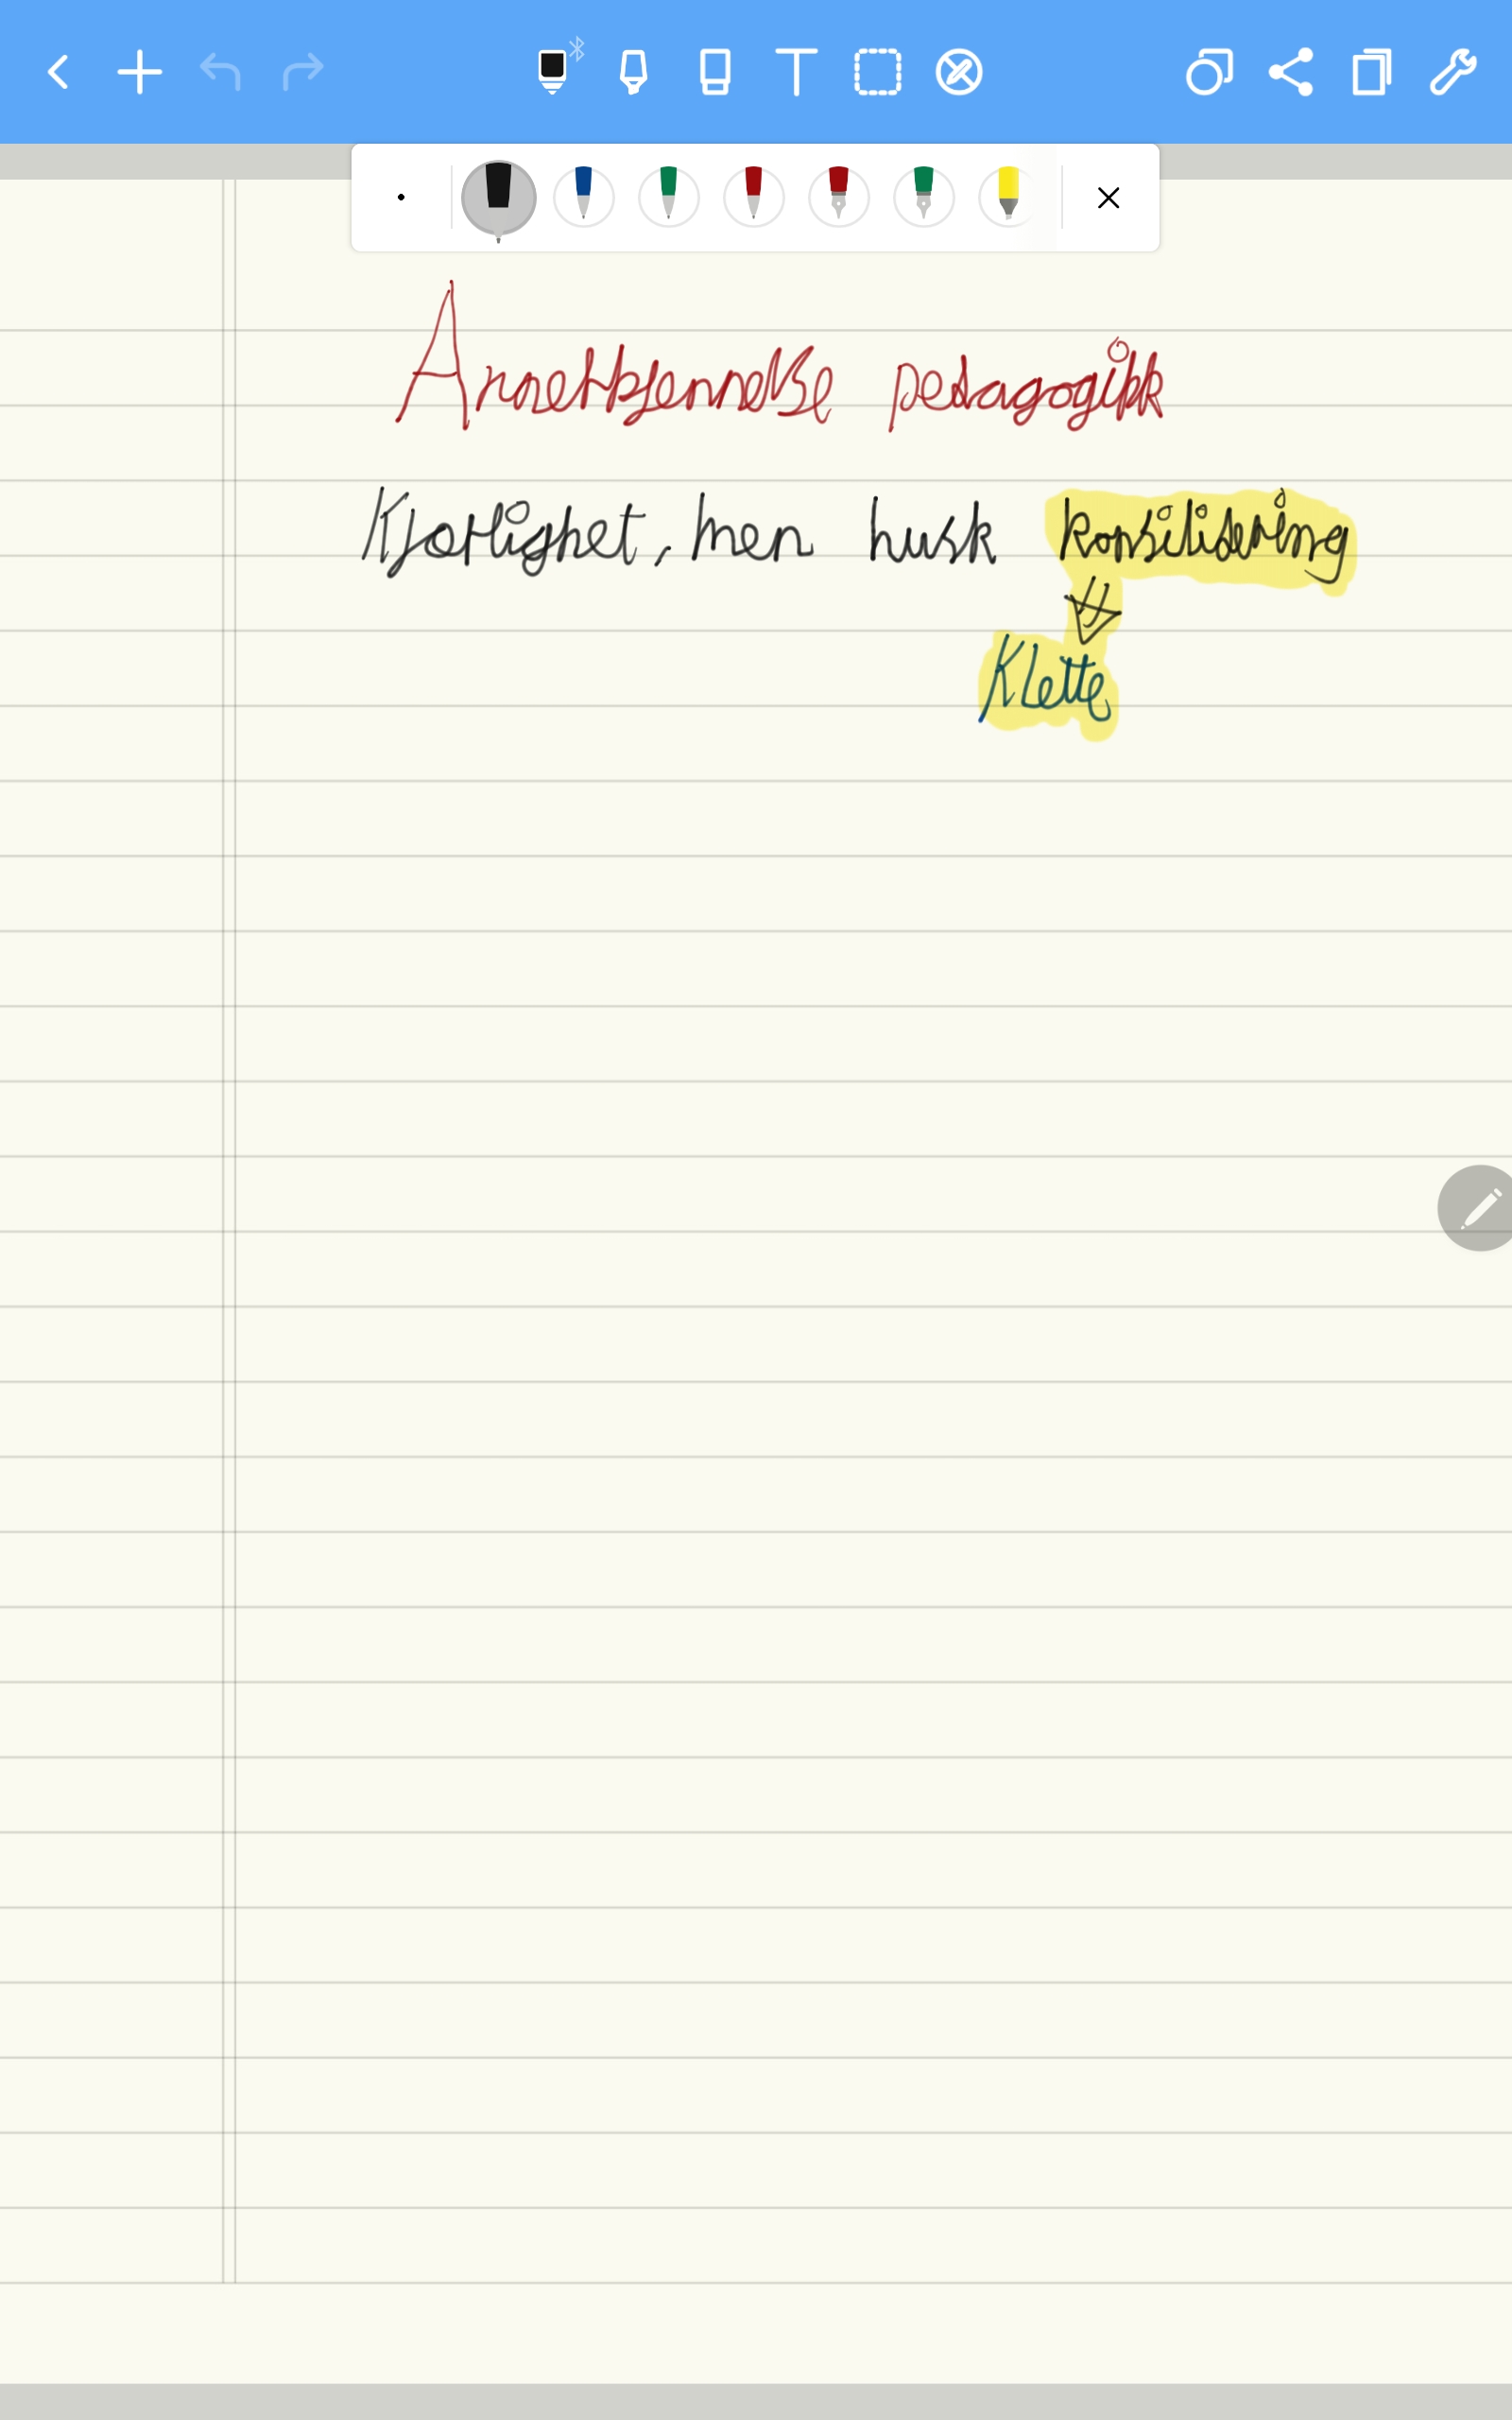 Annerkjennelse pedagogikk
Kjærlighet, men husk konsilidering
Klette